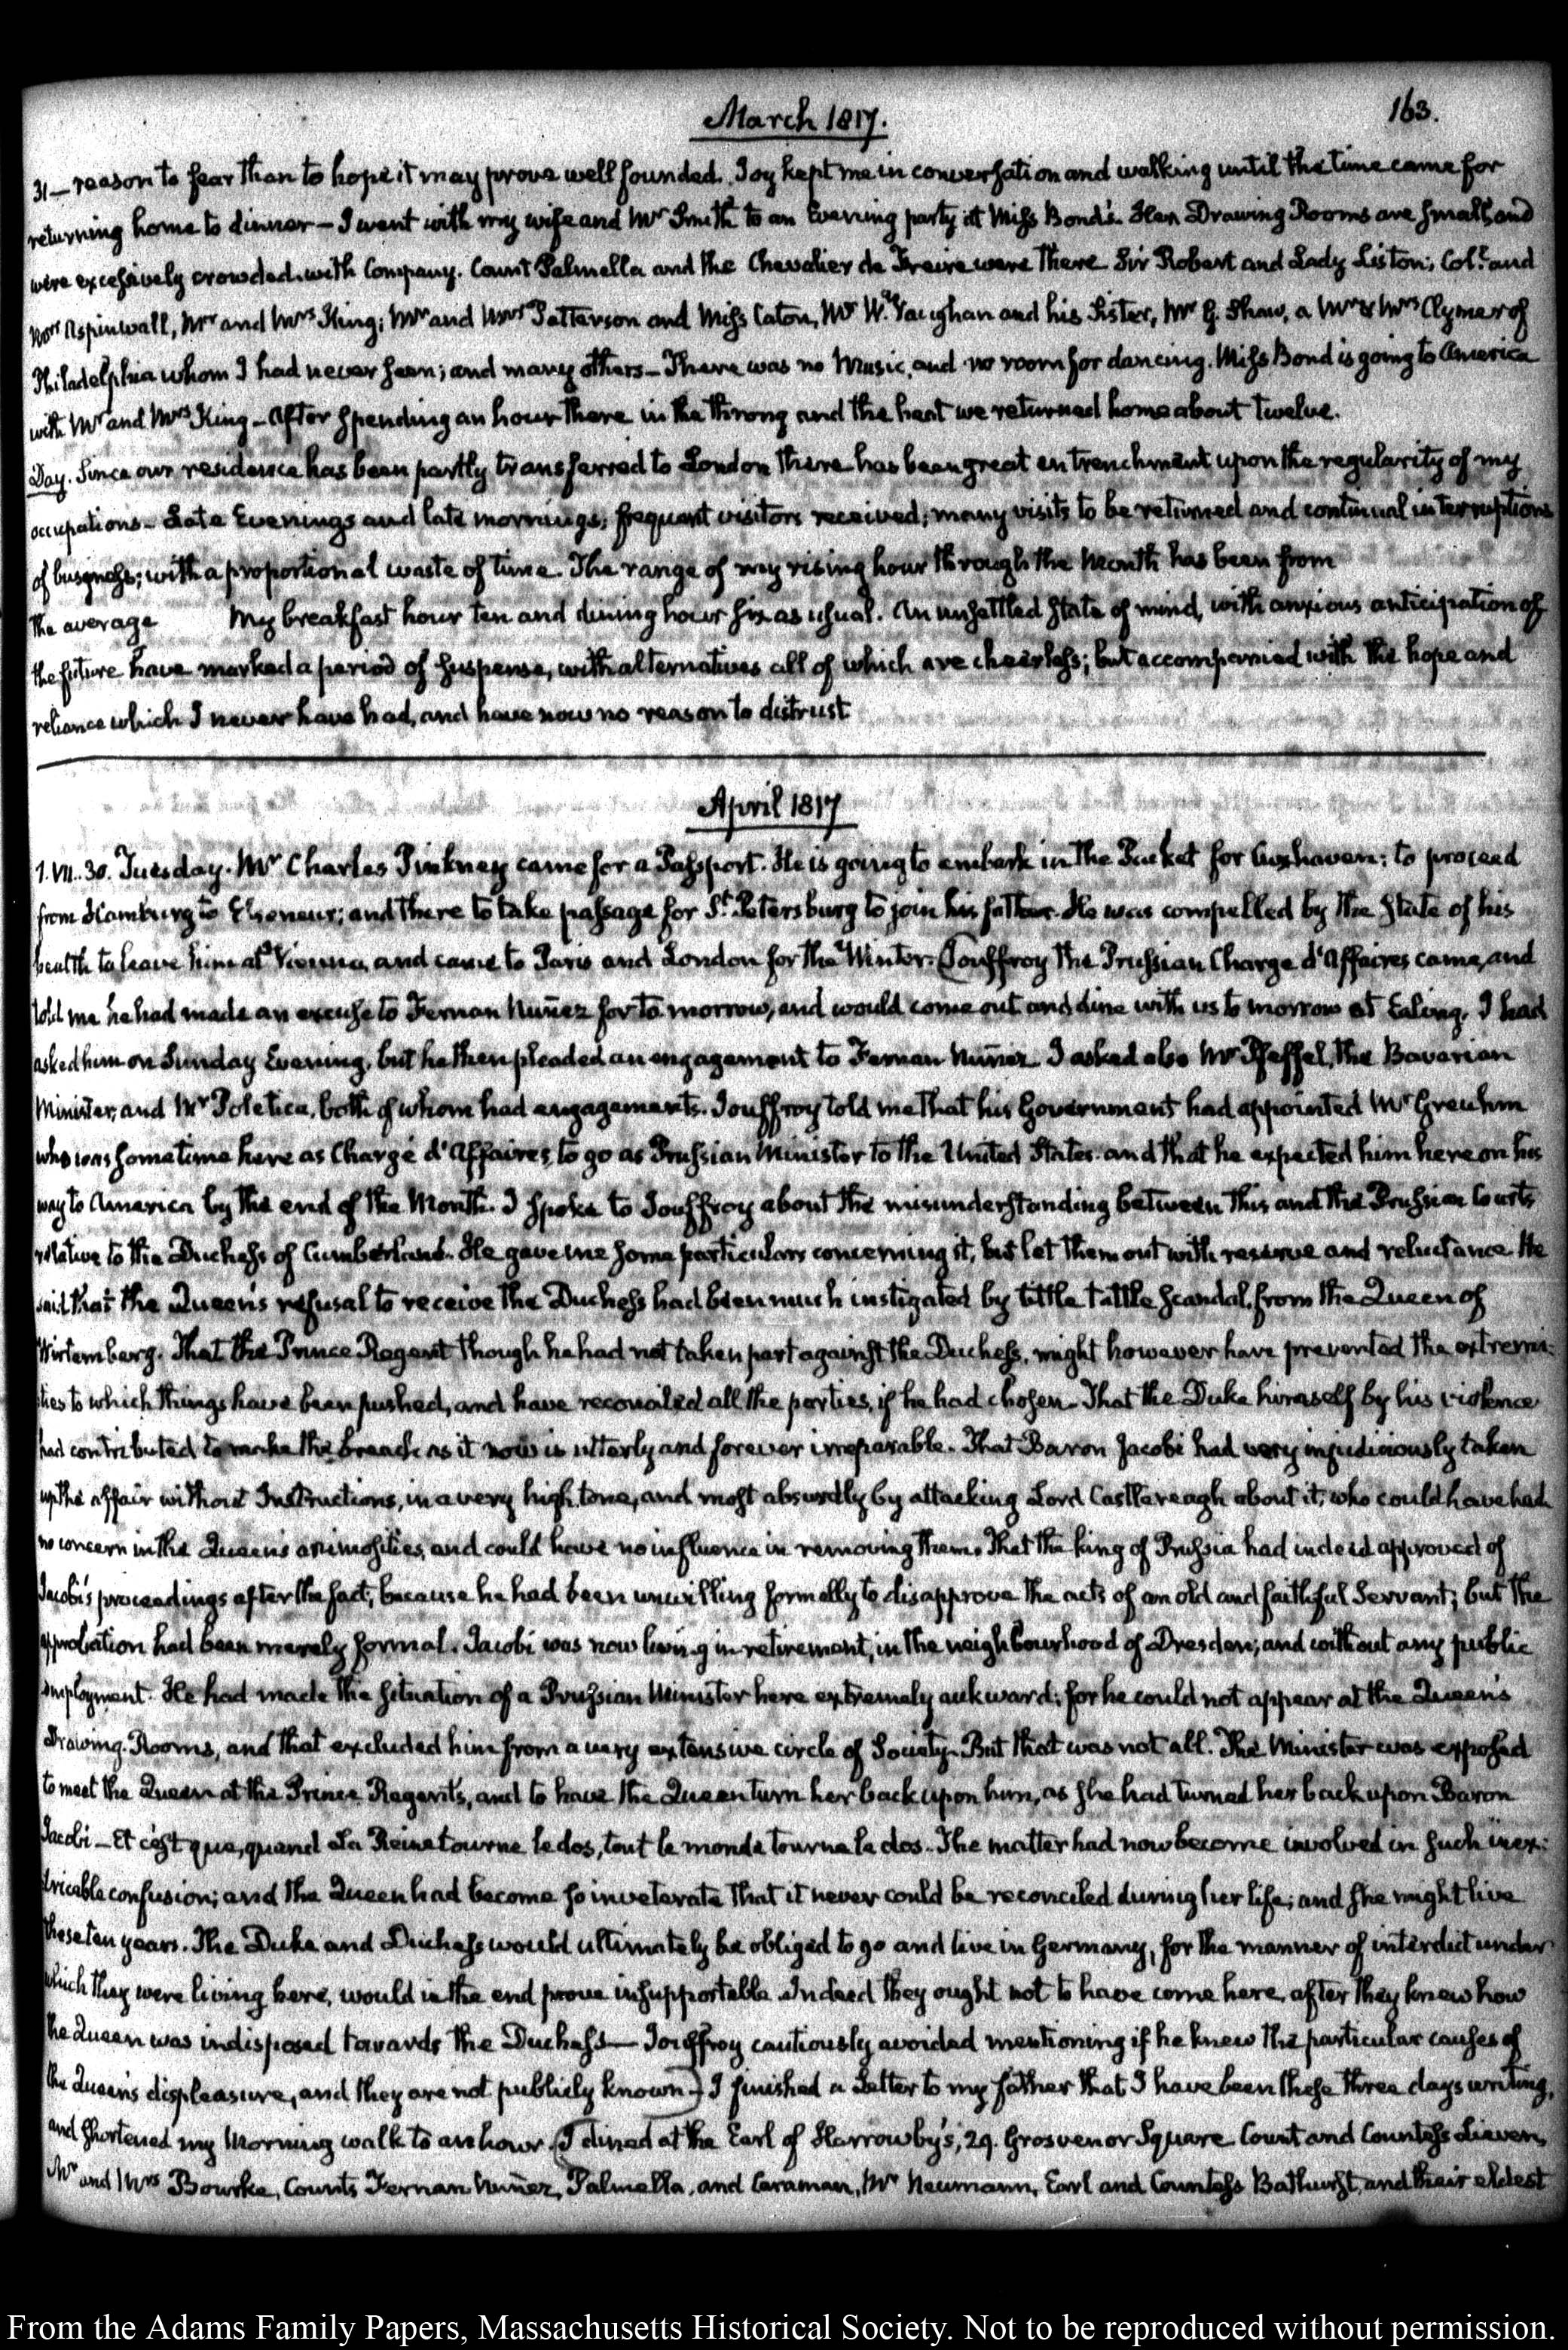 March 1817.
163.
31— reason to fear than to hope it may prove well founded. Joy kept me in conversation and walking until the time came for
returning home to dinner — I went with my wife and Mr Smith to an Evening party at Miss Bond's. Her Drawing Rooms are small, and
were excessively crowded with Company. Count Palmella and the Chevalier de Freire were there Sir Robert and Lady Liston; Coll. and
Mrs Aspinwall, Mr and Mrs King; Mr and Mrs Patterson and Miss Caton, Mr W. Vaughan and his Sister, Mr G. Shaw, a Mr & Mrs Clymer of
Philadelphia whom I had never seen; and many others — There was no Music, and no room for dancing. Miss Bond is going to America
with Mr and Mrs King — After spending an hour there in the throng and the heat we returned home about twelve.
Day. Since our residence has been partly transferred to London there has been great entrenchment upon the regularity of my
occupations — Late Evenings and late mornings; frequent visitors received; many visits to be returned and continual interruptions
of business; with a proportional waste of time. The range of my rising hour through the Month has been from
the average My breakfast hour ten and dining hour six as usual. An unsettled state of mind, with anxious anticipation of
the future have marked a period of suspense, with alternatives all of which are cheerless; but accompanied with the hope and
reliance which I never have had, and have now no reason to distrust
April 1817
1. VII..30. Tuesday. Mr Charles Pinkney came for a Passport. He is going to embark in the Packet for Cuxhaven; to proceed
from Hamburg to Elsoneur; and there to take passage for St. Petersburg to join his father. He was compelled by the State of his
health to leave him at Vienna, and came to Paris and London for the Winter. (Jouffroy the Prussian Charge d'Affaires came, and
told me he had made an excuse to Fernan Nuñez for to morrow, and would come out and dine with us to morrow at Ealing. I had
asked him on Sunday Evening, but he then pleaded an engagement to Fernan Nuñez. I asked also Mr Pfeffel, the Bavarian
Minister, and Mr Poletica, both of whom had engagements. Jouffroy told me that his Government had appointed Mr Greuhm
who was sometime here as Chargé d'Affaires, to go as Prussian Minister to the United States and that he expected him here on his
way to America by the end of the Month. I spoke to Jouffroy about the misunderstanding between this and the Prussian Courts
relative to the Duchess of Cumberland. He gave me some particulars concerning it, but let them out with reserve and reluctance He
said that the Queen's refusal to receive the Duchess had been much instigated by tittle tattle scandal, from the Queen of
Wirtemberg. That the Prince Regent though he had not taken part against the Duchess, might however have prevented the extremi-
ties to which things have been pushed, and have reconciled all the parties, if he had chosen. That the Duke himself by his violence
had contributed to make the breach as it now is utterly and forever irreparable. That Baron Jacobi had very injudiciously taken
up the affair without Instructions, in a very high tone, and most absurdly by attacking Lord Castlereagh about it, who could have had
no concern in the Queen's animosities, and could have no influence in removing them. That the king of Prussia had indeed approved of
Jacobi's proceedings after the fact, because he had been unwilling formally to disapprove the acts of an old and faithful Servant; but the
approbation had been merely formal. Jacobi was now living in retirement, in the neighbourhood of Dresden; and without any public
employment. He had made the situation of a Prussian Minister here extremely aukward; for he could not appear at the Queen's
Drawing-Rooms, and that excluded him from a very extensive circle of Society. But that was not all. The Minister was exposed
to meet the Queen at the Prince Regent's, and to have the Queen turn her back upon him, as she had turned her back upon Baron
Jacobi — Et c'est que, quand La Reine tourne le dos, tout le monde tourne le dos. The matter had now become involved in such inex-
tricable confusion; and the Queen had become so inveterate that it never could be reconciled during her life; and she might live
these ten years. The Duke and Duchess would ultimately be obliged to go and live in Germany, for the manner of interdict under
which they were living here, would in the end prove insupportable. Indeed they ought not to have come here, after they knew how
the Queen was indisposed towards the Duchess — Jouffroy cautiously avoided mentioning if he knew the particular causes of
the Queen's displeasure, and they are not publicly known —) I finished a Letter to my father that I have been these three days writing,
and shortened my Morning walk to an hour. (I dined at the Earl of Harrowby's, 29. Grosvenor Square Count and Countess Lieven,
Mr and Mrs Bourke, Counts Fernan Nuñez, Palmella, and Caraman, Mr Neumann, Earl and Countess Bathurst, and their eldest
From the Adams Family Papers, Massachusetts Historical Society. Not to be reproduced without permission.